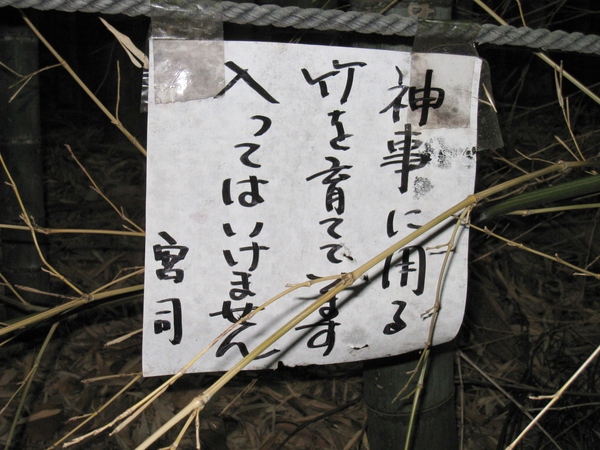 神事に用る
竹を育ててます
入ってはいけません
宮司